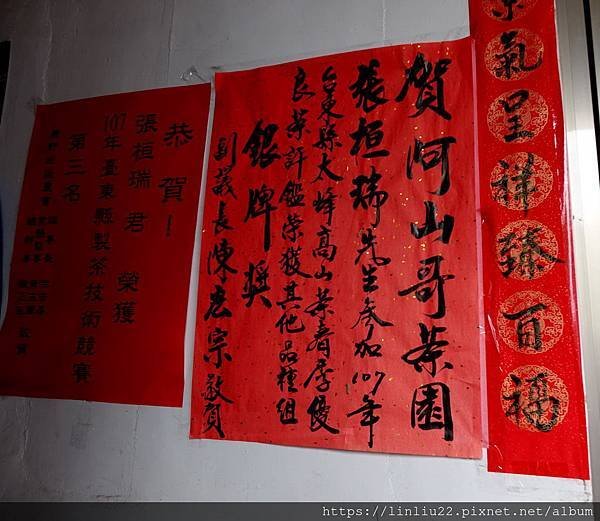 氣呈祥臻百福
賀阿山哥茶園
張桓瑞先生參加107年
台東縣太峰高山茶春季優
良茶評鑑榮獲其他品種組
銀牌獎
副議長陳宏宗敬賀
恭賀！
張桓瑞君 榮獲
107年臺東縣製茶技術競賽
第三名
https://linliu22.pixnet.net/album